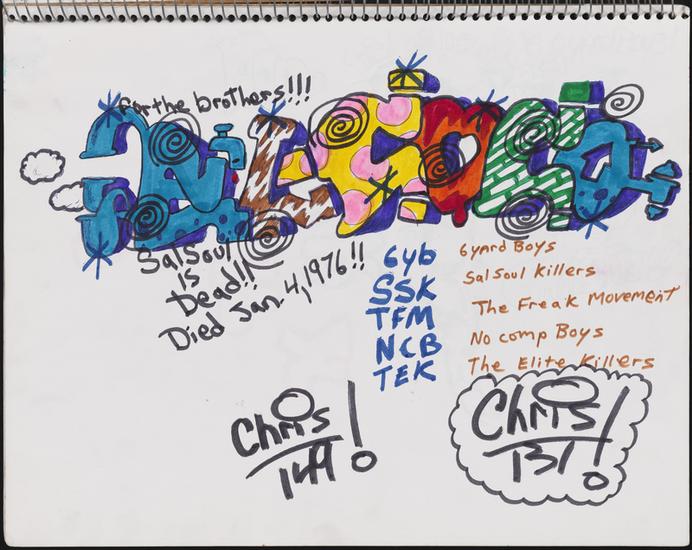 For the brothers!!!
SalSoul
is
Dead!!
Died Jan 4, 1976!!
6yb
SSK
TFM
NCB
TEK
6yard Boys
SalSoul Killers
The Freak Movement
No comp Boys
The Elite Killers
Chris
149!
Chris
131!